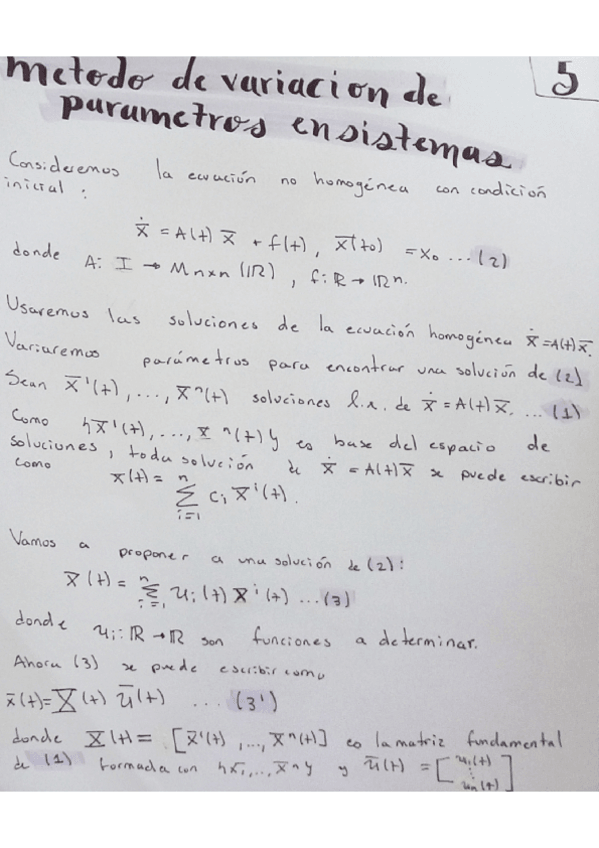 metodo de variacion de
parametros en sistemas
5
Consideremos la ecuación no homogénea con condición
inicial:
ẋ = A(t) x̅ + f(t), x̅(t0) = x0 ... (2)
donde A: I → Mnxn (IR), f: R → IRn.
Usaremos las soluciones de la ecuación homogénea ẋ = A(t) x̅.
Variaremos parámetros para encontrar una solución de (2)
Sean x̅¹(t), ..., x̅ⁿ(t) soluciones l.i. de ẋ = A(t) x̅. ... (1)
Como {x̅¹(t), ..., x̅ⁿ(t)} es base del espacio de
soluciones, toda solución de ẋ = A(t) x̅ se puede escribir
como
x(t) = Σᵢ₌₁ⁿ cᵢ x̅ⁱ(t).
Vamos a proponer a una solución de (2):
x̅(t) = Σᵢ₌₁ⁿ uᵢ(t) x̅ⁱ(t) ... (3)
donde uᵢ: IR → IR son funciones a determinar.
Ahora (3) se puede escribir como
x̅(t) = X(t) u̅(t) ... (3')
donde X(t) = [x̅¹(t), ..., x̅ⁿ(t)] es la matriz fundamental
de (1) formada con {x̅₁, ..., x̅ⁿ} y u̅(t) = [u₁(t) ⋮ uₙ(t)]